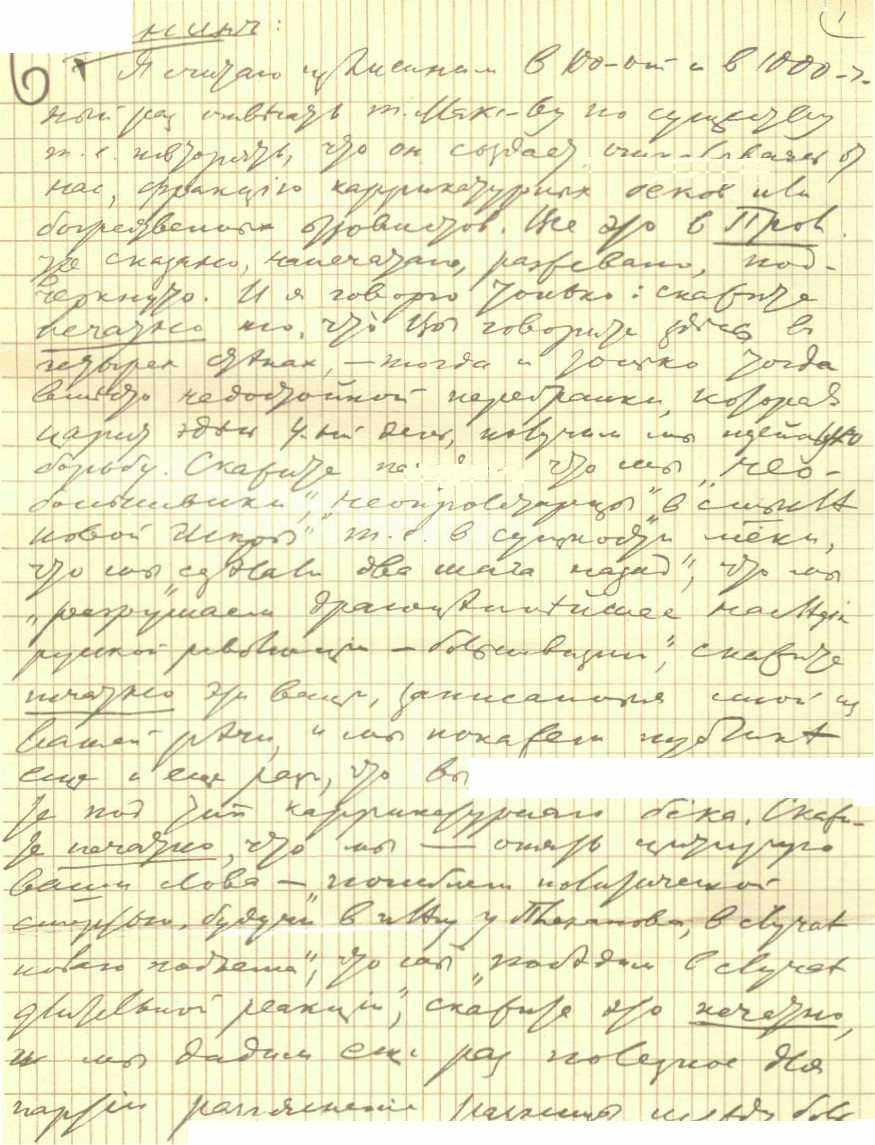 нинъ:
Я считаю излишним в 100-ый и в 1000-
ный раз отвечать т. Макс-ву по существу
т. е. повторять, что он создает от
нас, фракцію каррикатурных беков или
божественных отзовистов. Все это в Прол.
уже сказано, напечатано, разжевано, под-
черкнуто. И я говорю только: скажите
печатно то, что Вы говорите здѣсь в
четырех стѣнах, — тогда и только тогда
вместо недостойной перебранки, которая
царит здѣсь 4-ый день, получим мы идейную
борьбу. Скажите что мы „нео-
большевики“, „неопролетарцы“ в смыслѣ
новой Искры“ т. е. в сущности меки,
что мы „сдѣлали два шага назад“, что мы
„разрушаем драгоцѣннѣйшее наслѣдіе
русской революціи — большевизм“, скажите
печатно эти вещи, записанныя мной из
вашей рѣчи, и мы покажем публикѣ
еще и еще раз, что вы
те под тип каррикатурнаго бека. Скажи-
те печатно, что мы — опять цитирую
ваши слова — „погибнем политической
смертью, будучи в плѣну у Плеханова, в случаѣ
новаго подъема“, что мы „побѣдим в случаѣ
длительной реакціи“, скажите это печатно,
и мы дадим еще раз полезное для
партіи разъясненіе разницы между боль